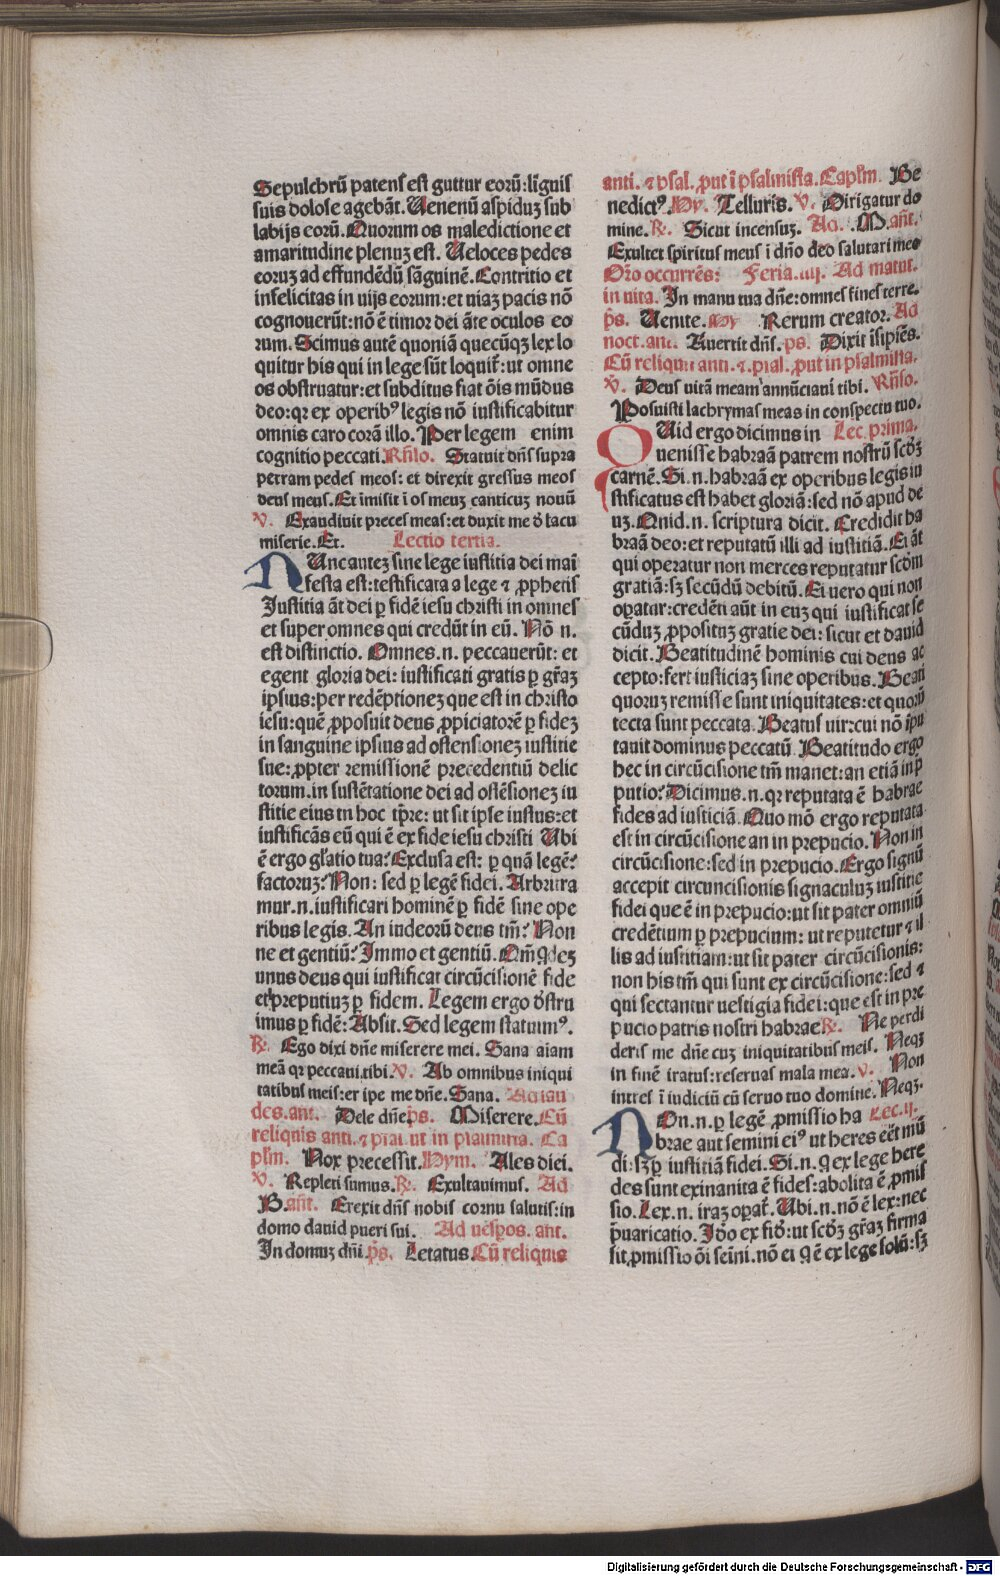 Sepulchrū patens est guttur eorū:līguis
suis dolose agebāt. Uenenū aspiduꝫ sub
labijs eorū. Quorum os maledictione et
amaritudine plenuꝫ est. Ueloces pedes
eoruꝫ ad effundēdū sāguinē. Contritio et
infelicitas in uijs eorum:et uiaꝫ pacis nō
cognouerūt:nō ē timor dei āte oculos eo
rum. Scimus autē quoniā quecūqꝫ lex lo
quitur his qui in lege sūt loquit᷑:ut omne
os obstruatur:et subditus fiat ōis mūdus
deo:qꝛ ex operibꝰ legis nō iustificabitur
omnis caro corā illo. Per legem enim
cognitio peccati. Rn̄so. Statuit dn̄s supra
petram pedes meos: et direxit gressus meos
deus meus. Et īmisit ī os meuꝫ canticuꝫ nouū
V. Exaudiuit preces meas:et duxit me đ lacu
miserie. Et. Lectio tertia.
NUnc anteꝫ sine lege iustitia dei mai
festa est:testificata a lege ⁊ ꝓphetis
Justitia āt dei ꝑ fidē iesu christi in omnes
et super omnes qui credūt in eū. Nō n.
est distinctio. Omnes.n. peccauerūt: et
egent gloria dei: iustificati gratis ꝑ gr̄aꝫ
ipsius:per redēptioneꝫ que est in christo
iesu:quē ꝓposuit deus ꝓpiciatorē ꝑ fideꝫ
in sanguine ipsius ad ostensioneꝫ iustitie
sue:ꝓpter remissionē precedentiū delic
torum.in sustētatione dei ad ostēsioneꝫ iu
stitie eius in hoc tp̄re: ut sit ipse iustus:et
iustificās eū qui ē ex fide iesu christi Ubi
ē ergo gl̄atio tua? Exclusa est: ꝑ quā legē?
factoruꝫ? Non: sed ꝑ legē fidei. Arbitra
mur.n.iustificari hominē ꝑ fidē sine ope
ribus legis. An iudeorū deus tm̄? Non
ne et gentiū? Immo et gentiū. Qm̄ ꝗdeꝫ
unus deus qui iustificat circūcisionē fide
et p̄putiuꝫ ꝑ fidem. Legem ergo đstru
imus ꝑ fidē: Absit. Sed legem statuimꝰ.
℟. Ego dixi dn̄e miserere mei. Sana aīam
meā qꝛ peccaui.tibi. V. Ab omnibus iniqui
tatibus meis:eripe me dn̄e. Sana. Ad lau
des.ant. Dele dn̄e p̄s. Miserere. Cū
reliquis anti.⁊ psal ut in psalmista. Ca
pl̄m. Nox precessit. Hym. Ales diei.
V. Repleti sumus. ℟. Exultauimus. Ad
B. an̄t. Erexit dn̄s nobis cornu salutis:in
domo dauid pueri sui. Ad uēsꝑos. an̄t.
In domuꝫ dn̄i. p̄s. Letatus Cū reliquis
anti. ⁊ psal. ꝓut ī psalmista. Capl̄m. Be
nedictꝰ. Hy. Telluris. V. Dirigatur do
mine. ℟. Sicut incensuꝫ. Ad. M. an̄t.
Exultet spiritus meus ī dn̄o deo salutari meo
Or̄o occurrēs: Feria.iiij. Ad matut.
in uita. In manu tua dn̄e:omnes fines terre.
p̄s. Uenite. Hy Rerum creator. Ad
noct.ant. Auertit dn̄s. ps. Dixit īsipiēs.
Cū reliquis anti.⁊.psal. ꝓut in psalmista.
V. Deus uitā meam annūciaui tibi. Rn̄so.
Posuisti lachrymas meas in conspectu tuo.
QUid ergo dicimus in Lec. prima.
uenisse habraā patrem nostrū scđꝫ
carnē. Si.n.habraā ex operibus legis iu
stificatus est habet gloriā:sed nō apud de
uꝫ. Quid.n. scriptura dicit. Credidit ha
braā deo:et reputatū illi ad iustitiā. Ei āt
qui operatur non merces reputatur scđm
gratiā:sꝫ secūdū debitū. Ei uero qui non
oꝑatur:credēti aūt in euꝫ qui iustificat se
cūduꝫ ꝓposituꝫ gratie dei: sicut et dauid
dicit. Beatitudinē hominis cui deus ac
cepto:fert iusticiaꝫ sine operibus. Beati
quoruꝫ remisse sunt iniquitates:et quorū
tecta sunt peccata. Beatus uir:cui nō īpu
tauit dominus peccatū. Beatitudo ergo
hec in circūcisione tm̄ manet:an etiā in p̄
putio? Dicimus.n.qꝛ reputata ē habrae
fides ad iusticiā. Quo mō ergo reputata
est in circūcisione an in prepucio. Non in
circūcisione:sed in prepucio. Ergo signū
accepit circuncisionis signaculuꝫ iustitie
fidei que ē in prepucio:ut sit pater omniū
credētium ꝑ prepucium: ut reputetur ⁊ il
lis ad iustitiam:ut sit pater circūcisionis:
non his tm̄ qui sunt ex circūcisione:sed ⁊
qui sectantur uestigia fidei:que est in pre
pucio patris nostri habrae ℟. Ne perdi
deris me dn̄e cuꝫ iniquitatibus meis. Neqꝫ
in finē iratus:reseruas mala mea. V. Non
intres ī iudiciū cū seruo tuo domine. Neqꝫ.
NOn.n.ꝑ legē ꝓmissio ha Lec.ij.
brae aut semini eiꝰ ut heres eēt mū
di:sꝫ ꝑ iustitiā fidei. Si.n. ꝗ ex lege here
des sunt exinanita ē fides:abolita ē ꝓmis
sio. Lex.n. iraꝫ oꝑat᷑. Ubi.n.nō ē lex:nec
p̄uaricatio. Iđo ex fiđ:ut scđꝫ gr̄aꝫ firma
sit ꝓmissio ōi seīni.nō ei ꝗ ē ex lege solū:sꝫ
Digitalisierung gefördert durch die Deutsche Forschungsgemeinschaft - DFG